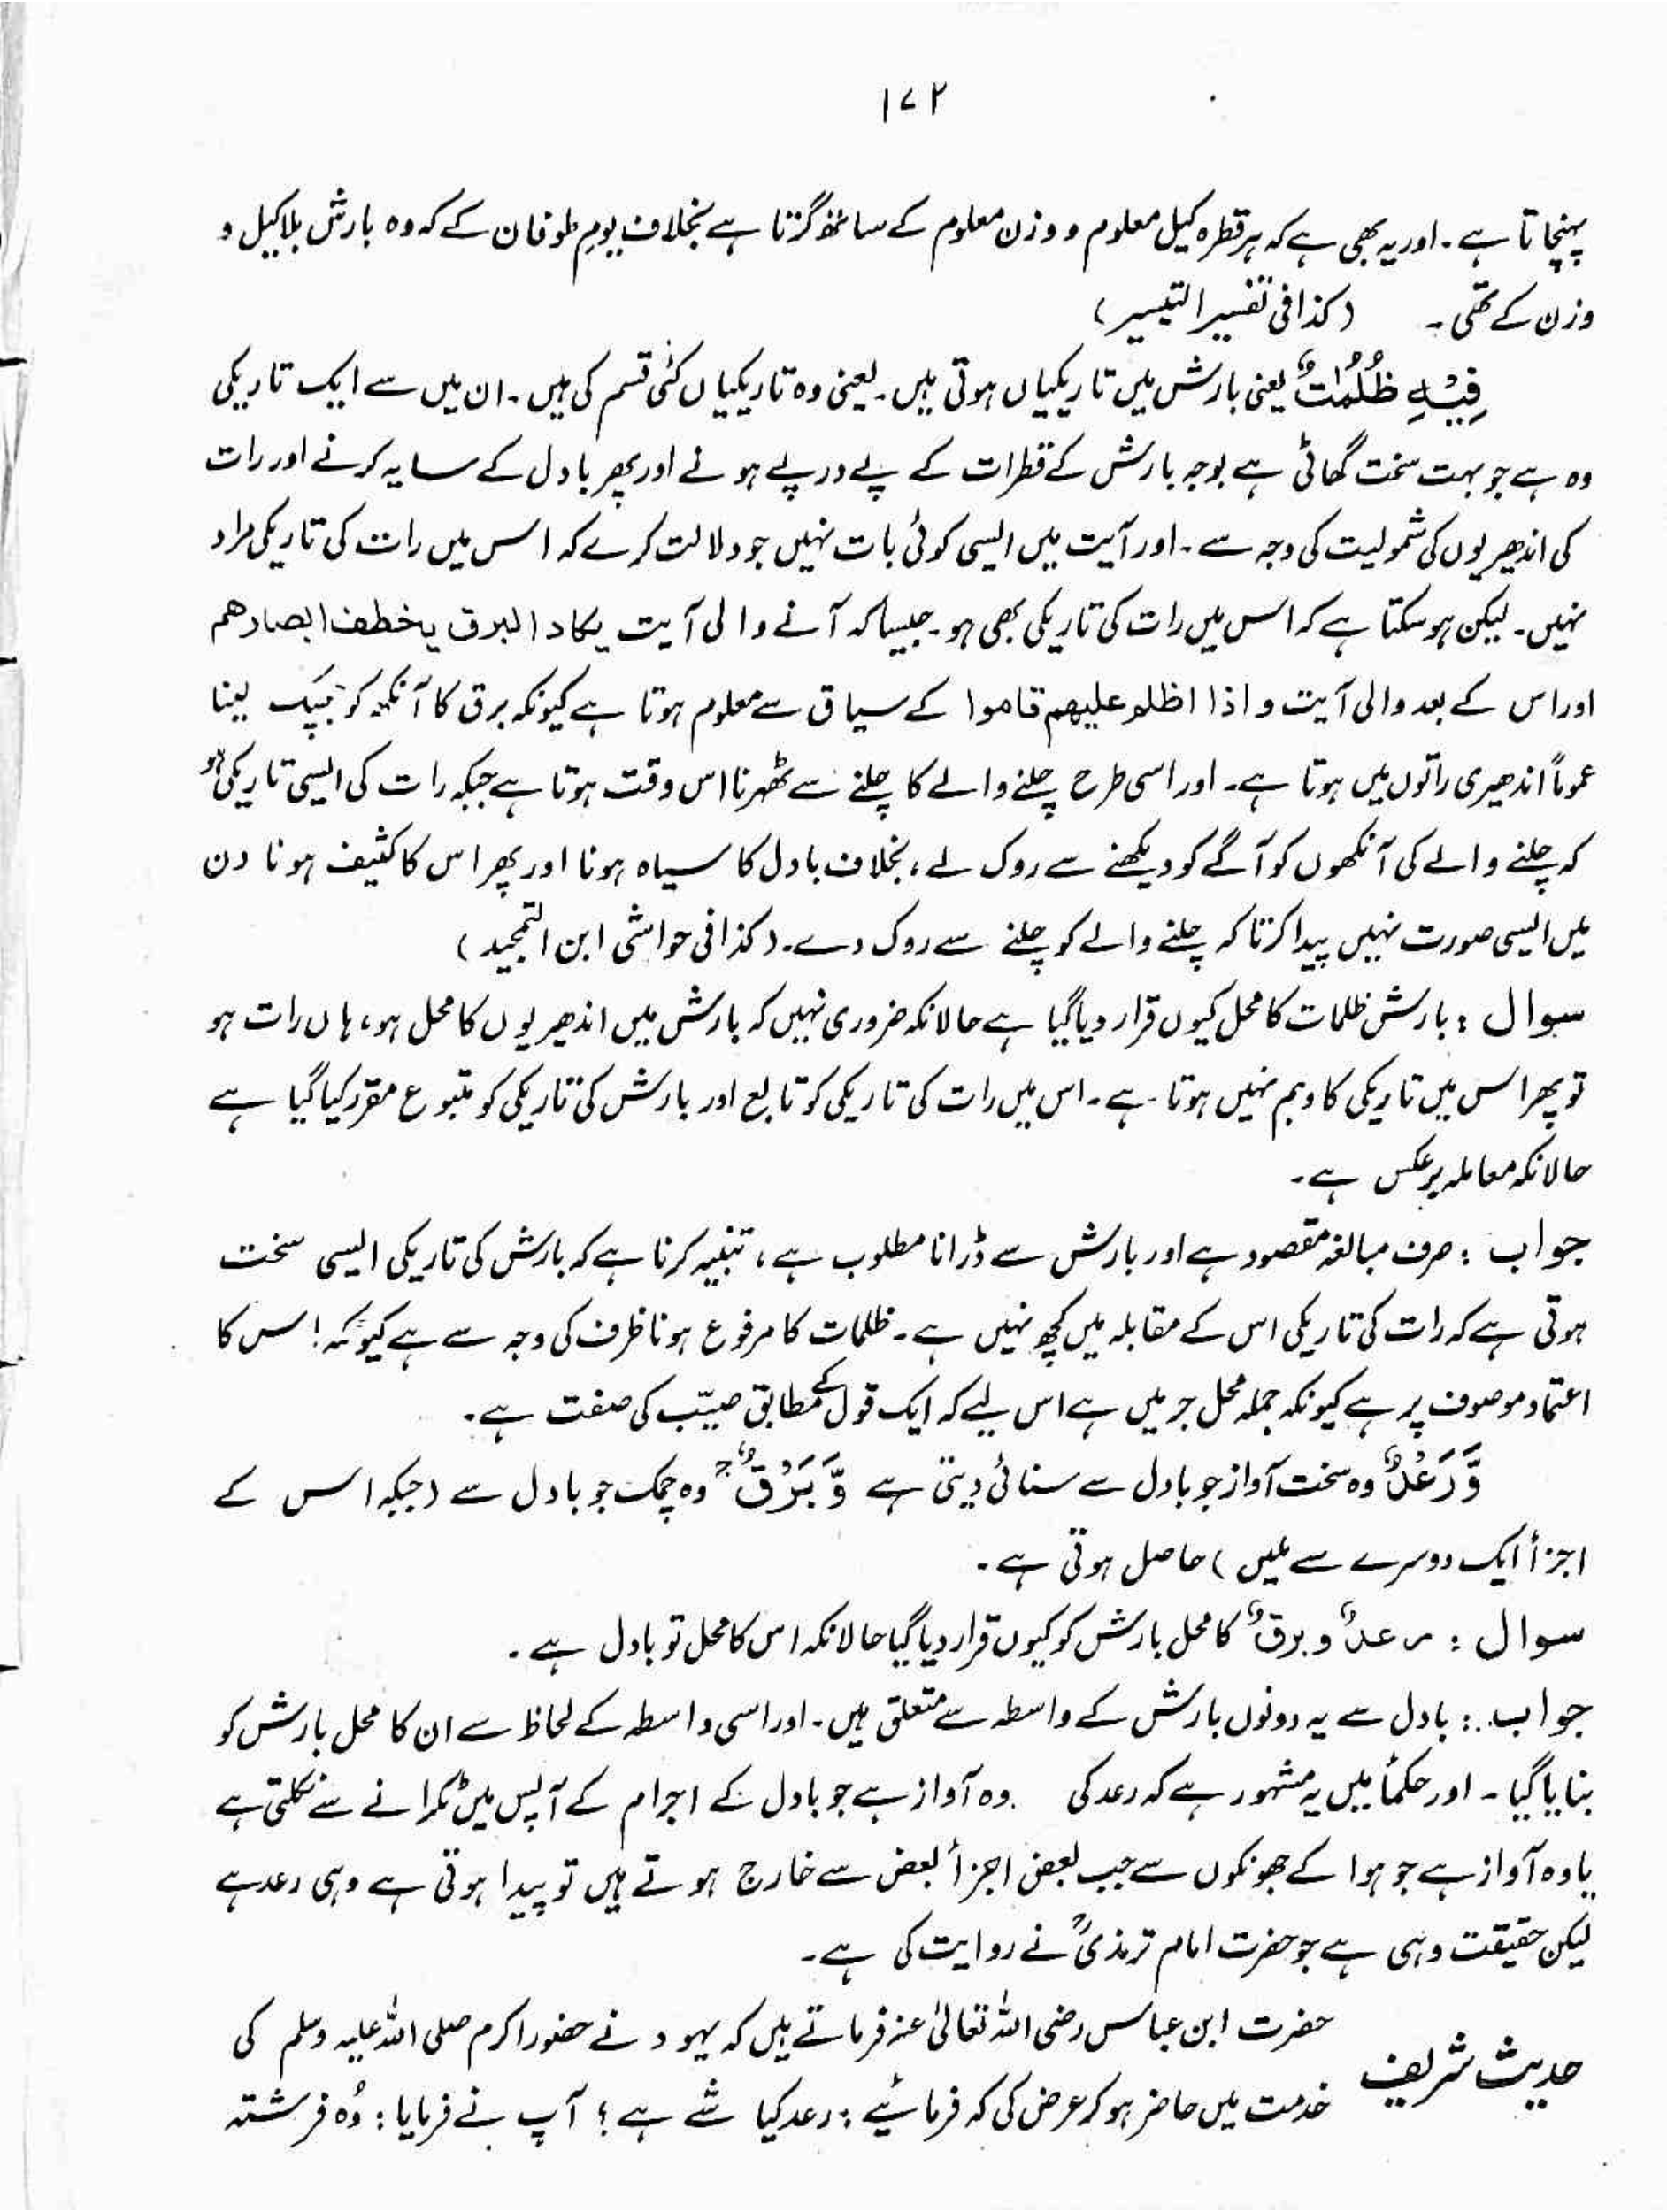 ۱۷۲
پہنچاتا ہے ۔ اور یہ بھی ہے کہ ہر قطرہ کیل معلوم و وزن معلوم کے ساتھ گرتا ہے بخلاف یومِ طوفان کے کہ وہ بارش بلاکیل و
وزن کے تھی ۔ (کذا فی تفسیر التیسیر)
فِیْهِ ظُلُمٰتٌ یعنی بارش میں تاریکیاں ہوتی ہیں ۔ یعنی وہ تاریکیاں کئی قسم کی ہیں ۔ ان میں سے ایک تاریکی
وہ ہے جو بہت سخت گھاٹی ہے بوجہ بارش کے قطرات کے پے درپے ہونے اور پھر بادل کے سایہ کرنے اور رات
کی اندھیریوں کی شمولیت کی وجہ سے ۔ اور آیت میں ایسی کوئی بات نہیں جو دلالت کرے کہ اس میں رات کی تاریکی مراد
نہیں ۔ لیکن ہو سکتا ہے کہ اس میں رات کی تاریکی بھی ہو ۔ جیسا کہ آنے والی آیت یکاد البرق یخطف ابصارهم
اور اس کے بعد والی آیت و اذا اظلم علیهم قاموا کے سیاق سے معلوم ہوتا ہے کیونکہ برق کا آنکھ کو جھپک لینا
عموماً اندھیری راتوں میں ہوتا ہے ۔ اور اسی طرح چلنے والے کا چلنے سے ٹھہرنا اس وقت ہوتا ہے جبکہ رات کی ایسی تاریکی ہو
کہ چلنے والے کی آنکھوں کو آگے کو دیکھنے سے روک لے ، بخلاف بادل کا سیاہ ہونا اور پھر اس کا کثیف ہونا دن
میں ایسی صورت نہیں پیدا کرتا کہ چلنے والے کو چلنے سے روک دے ۔ (کذا فی حواشی ابن التمجید)
سوال : بارش ظلمات کا محل کیوں قرار دیا گیا ہے حالانکہ ضروری نہیں کہ بارش میں اندھیریوں کا محل ہو ، ہاں رات ہو
تو پھر اس میں تاریکی کا وہم نہیں ہوتا ہے ۔ اس میں رات کی تاریکی کو تابع اور بارش کی تاریکی کو متبوع مقرر کیا گیا ہے
حالانکہ معاملہ برعکس ہے ۔
جواب : صرف مبالغہ مقصود ہے اور بارش سے ڈرانا مطلوب ہے ، تنبیہ کرنا ہے کہ بارش کی تاریکی ایسی سخت
ہوتی ہے کہ رات کی تاریکی اس کے مقابلہ میں کچھ نہیں ہے ۔ ظلمات کا مرفوع ہونا ظرف کی وجہ سے ہے کیونکہ اس کا
اعتماد موصوف پر ہے کیونکہ جملہ محل جر میں ہے اس لیے کہ ایک قول کے مطابق صیّب کی صفت ہے ۔
وَّرَعْدٌ وہ سخت آواز جو بادل سے سنائی دیتی ہے وَّبَرْقٌ ج وہ چمک جو بادل سے (جبکہ اس کے
اجزأ ایک دوسرے سے ملیں) حاصل ہوتی ہے ۔
سوال : رعدٌ و برقٌ کا محل بارش کو کیوں قرار دیا گیا حالانکہ اس کا محل تو بادل ہے ۔
جواب : بادل سے یہ دونوں بارش کے واسطہ سے متعلق ہیں ۔ اور اسی واسطہ کے لحاظ سے ان کا محل بارش کو
بنایا گیا ۔ اور حکمأ میں یہ مشہور ہے کہ رعد کی وہ آواز ہے جو بادل کے اجرام کے آپس میں ٹکرانے سے نکلتی ہے
یا وہ آواز ہے جو ہوا کے جھونکوں سے جب بعض اجزأ بعض سے خارج ہوتے ہیں تو پیدا ہوتی ہے وہی رعد ہے
لیکن حقیقت وہی ہے جو حضرت امام ترمذیؒ نے روایت کی ہے ۔
حدیث شریف حضرت ابن عباس رضی اللہ تعالیٰ عنہ فرماتے ہیں کہ یہود نے حضور اکرم صلی اللہ علیہ وسلم کی
خدمت میں حاضر ہو کر عرض کی کہ فرمائیے : رعد کیا شے ہے ؟ آپ نے فرمایا : وُہ فرشتہ